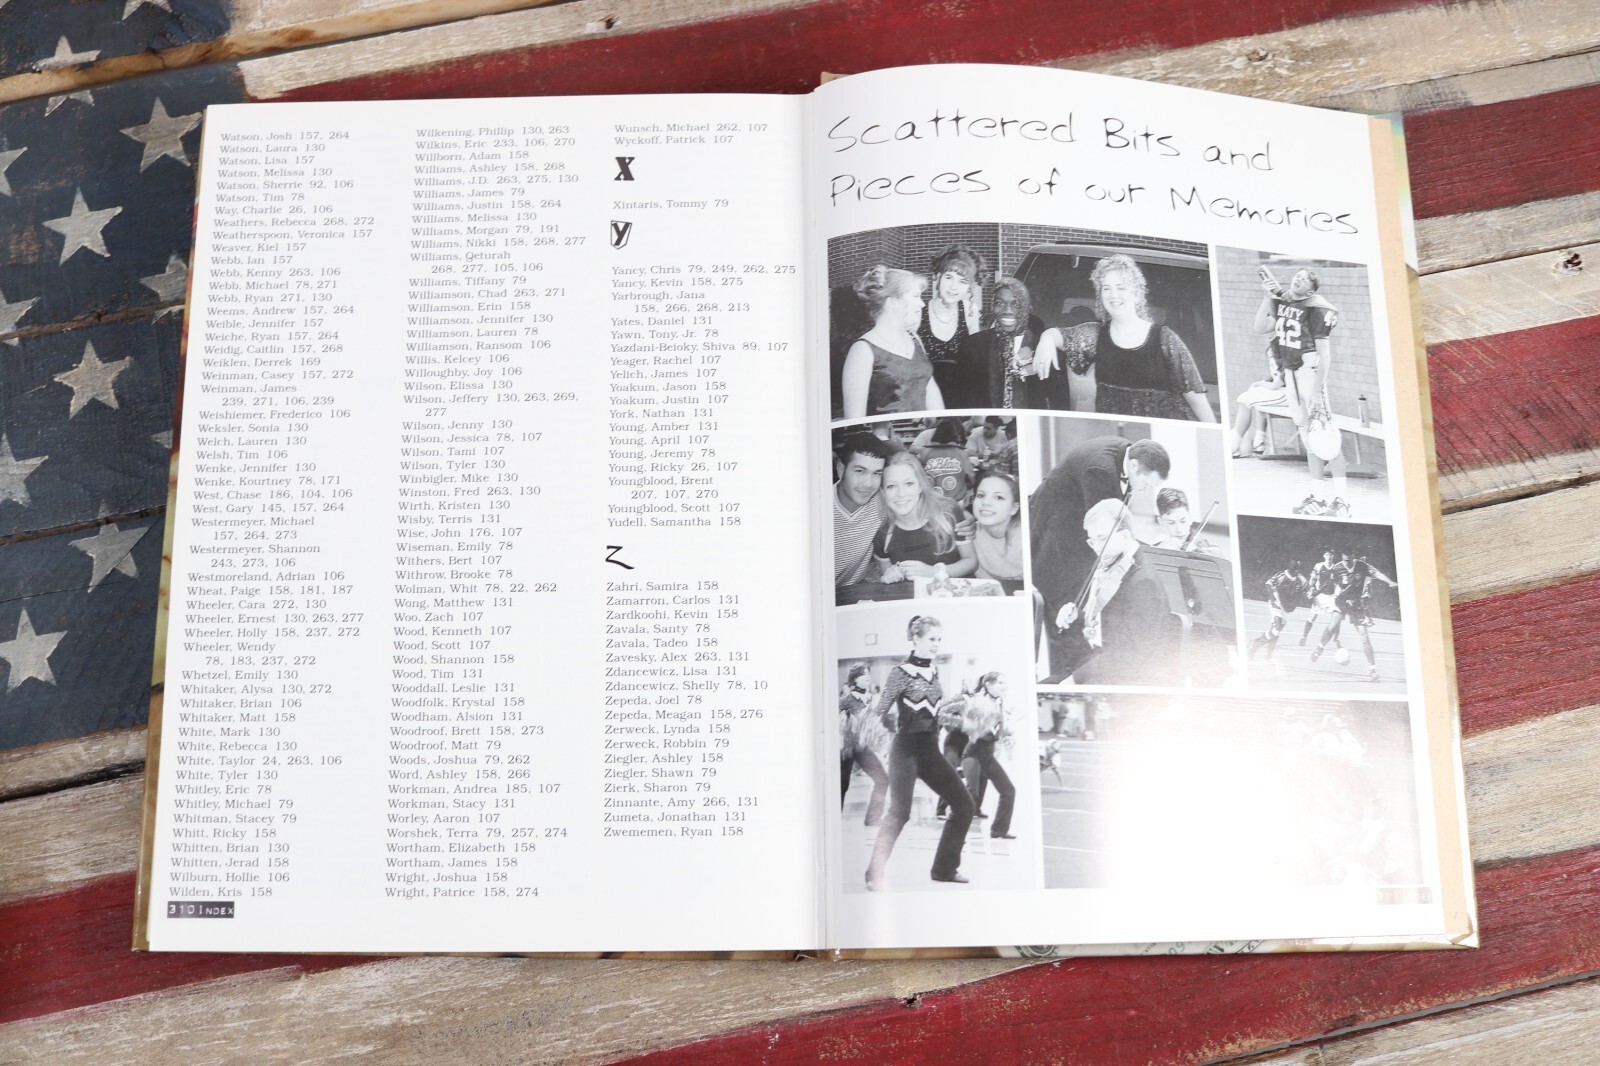 Watson, Josh 157, 264
Watson, Laura 130
Watson, Lisa 157
Watson, Melissa 130
Watson, Sherrie 92, 106
Watson, Tim 78
Way, Charlie 26, 106
Weathers, Rebecca 268, 272
Weatherspoon, Veronica 157
Weaver, Kiel 157
Webb, Ian 157
Webb, Kenny 263, 106
Webb, Michael 78, 271
Webb, Ryan 271, 130
Weems, Andrew 157, 264
Weible, Jennifer 157
Weiche, Ryan 157, 264
Weidig, Caitlin 157, 268
Weiklen, Derrek 169
Weinman, Casey 157, 272
Weinman, James
239, 271, 106, 239
Weishiemer, Frederico 106
Weksler, Sonia 130
Welch, Lauren 130
Welsh, Tim 106
Wenke, Jennifer 130
Wenke, Kourtney 78, 171
West, Chase 186, 104, 106
West, Gary 145, 157, 264
Westermeyer, Michael
157, 264, 273
Westermeyer, Shannon
243, 273, 106
Westmoreland, Adrian 106
Wheat, Paige 158, 181, 187
Wheeler, Cara 272, 130
Wheeler, Ernest 130, 263, 277
Wheeler, Holly 158, 237, 272
Wheeler, Wendy
78, 183, 237, 272
Whetzel, Emily 130
Whitaker, Alysa 130, 272
Whitaker, Brian 106
Whitaker, Matt 158
White, Mark 130
White, Rebecca 130
White, Taylor 24, 263, 106
White, Tyler 130
Whitley, Eric 78
Whitley, Michael 79
Whitman, Stacey 79
Whitt, Ricky 158
Whitten, Brian 130
Whitten, Jerad 158
Wilburn, Hollie 106
Wilden, Kris 158
310 Index
Wilkening, Phillip 130, 263
Wilkins, Eric 233, 106, 270
Willborn, Adam 158
Williams, Ashley 158, 268
Williams, J.D. 263, 275, 130
Williams, James 79
Williams, Justin 158, 264
Williams, Melissa 130
Williams, Morgan 79, 191
Williams, Nikki 158, 268, 277
Williams, Qeturah
268, 277, 105, 106
Williams, Tiffany 79
Williamson, Chad 263, 271
Williamson, Erin 158
Williamson, Jennifer 130
Williamson, Lauren 78
Williamson, Ransom 106
Willis, Kelcey 106
Willoughby, Joy 106
Wilson, Elissa 130
Wilson, Jeffery 130, 263, 269,
277
Wilson, Jenny 130
Wilson, Jessica 78, 107
Wilson, Tami 107
Wilson, Tyler 130
Winbigler, Mike 130
Winston, Fred 263, 130
Wirth, Kristen 130
Wisby, Terris 131
Wise, John 176, 107
Wiseman, Emily 78
Withers, Bert 107
Withrow, Brooke 78
Wolman, Whit 78, 22, 262
Wong, Matthew 131
Woo, Zach 107
Wood, Kenneth 107
Wood, Scott 107
Wood, Shannon 158
Wood, Tim 131
Wooddall, Leslie 131
Woodfolk, Krystal 158
Woodham, Alsion 131
Woodroof, Brett 158, 273
Woodroof, Matt 79
Woods, Joshua 79, 262
Word, Ashley 158, 266
Workman, Andrea 185, 107
Workman, Stacy 131
Worley, Aaron 107
Worshek, Terra 79, 257, 274
Wortham, Elizabeth 158
Wortham, James 158
Wright, Joshua 158
Wright, Patrice 158, 274
Wunsch, Michael 262, 107
Wyckoff, Patrick 107
X
Xintaris, Tommy 79
y
Yancy, Chris 79, 249, 262, 275
Yancy, Kevin 158, 275
Yarbrough, Jana
158, 266, 268, 213
Yates, Daniel 131
Yawn, Tony, Jr. 78
Yazdani-Beioky, Shiva 89, 107
Yeager, Rachel 107
Yelich, James 107
Yoakum, Jason 158
Yoakum, Justin 107
York, Nathan 131
Young, Amber 131
Young, April 107
Young, Jeremy 78
Young, Ricky 26, 107
Youngblood, Brent
207, 107, 270
Youngblood, Scott 107
Yudell, Samantha 158
Z
Zahri, Samira 158
Zamarron, Carlos 131
Zardkoohi, Kevin 158
Zavala, Santy 78
Zavala, Tadeo 158
Zavesky, Alex 263, 131
Zdancewicz, Lisa 131
Zdancewicz, Shelly 78, 10
Zepeda, Joel 78
Zepeda, Meagan 158, 276
Zerweck, Lynda 158
Zerweck, Robbin 79
Ziegler, Ashley 158
Ziegler, Shawn 79
Zierk, Sharon 79
Zinnante, Amy 266, 131
Zumeta, Jonathan 131
Zwememen, Ryan 158
Scattered Bits and
Pieces of our Memories
KATY
42